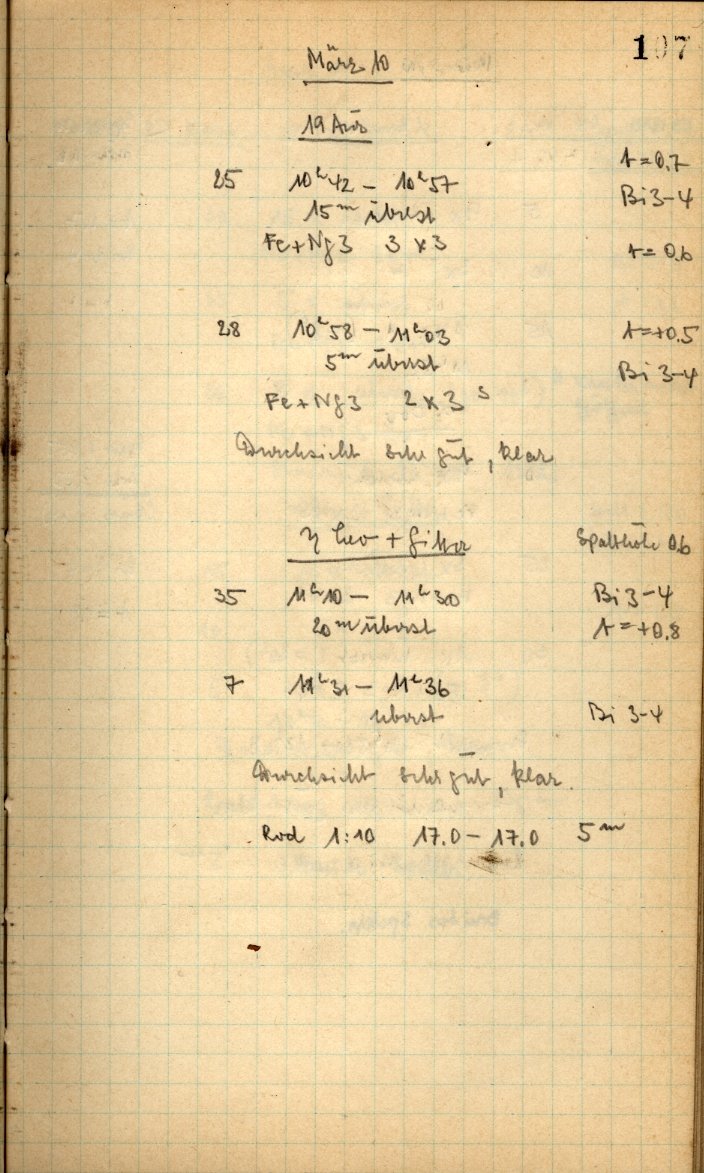 107
März 10
19 Aur
t=0.7
25 10h42 – 10h57 Bi 3-4
15m überst
Fe+Ng3 3 x 3 t=0.6
28 10h58 – 11h03 t=+0.5
5m überst Bi 3-4
Fe+Ng3 2 x 3 s
Durchsicht sehr gut, klar
η Leo + Gitter Spalthöhe 0.6
35 11h10 – 11h30 Bi 3-4
20m überst t=+0.8
7 11h31 – 11h36
überst Bi 3-4
Durchsicht sehr gut, klar.
1:10 17.0 – 17.0 5m